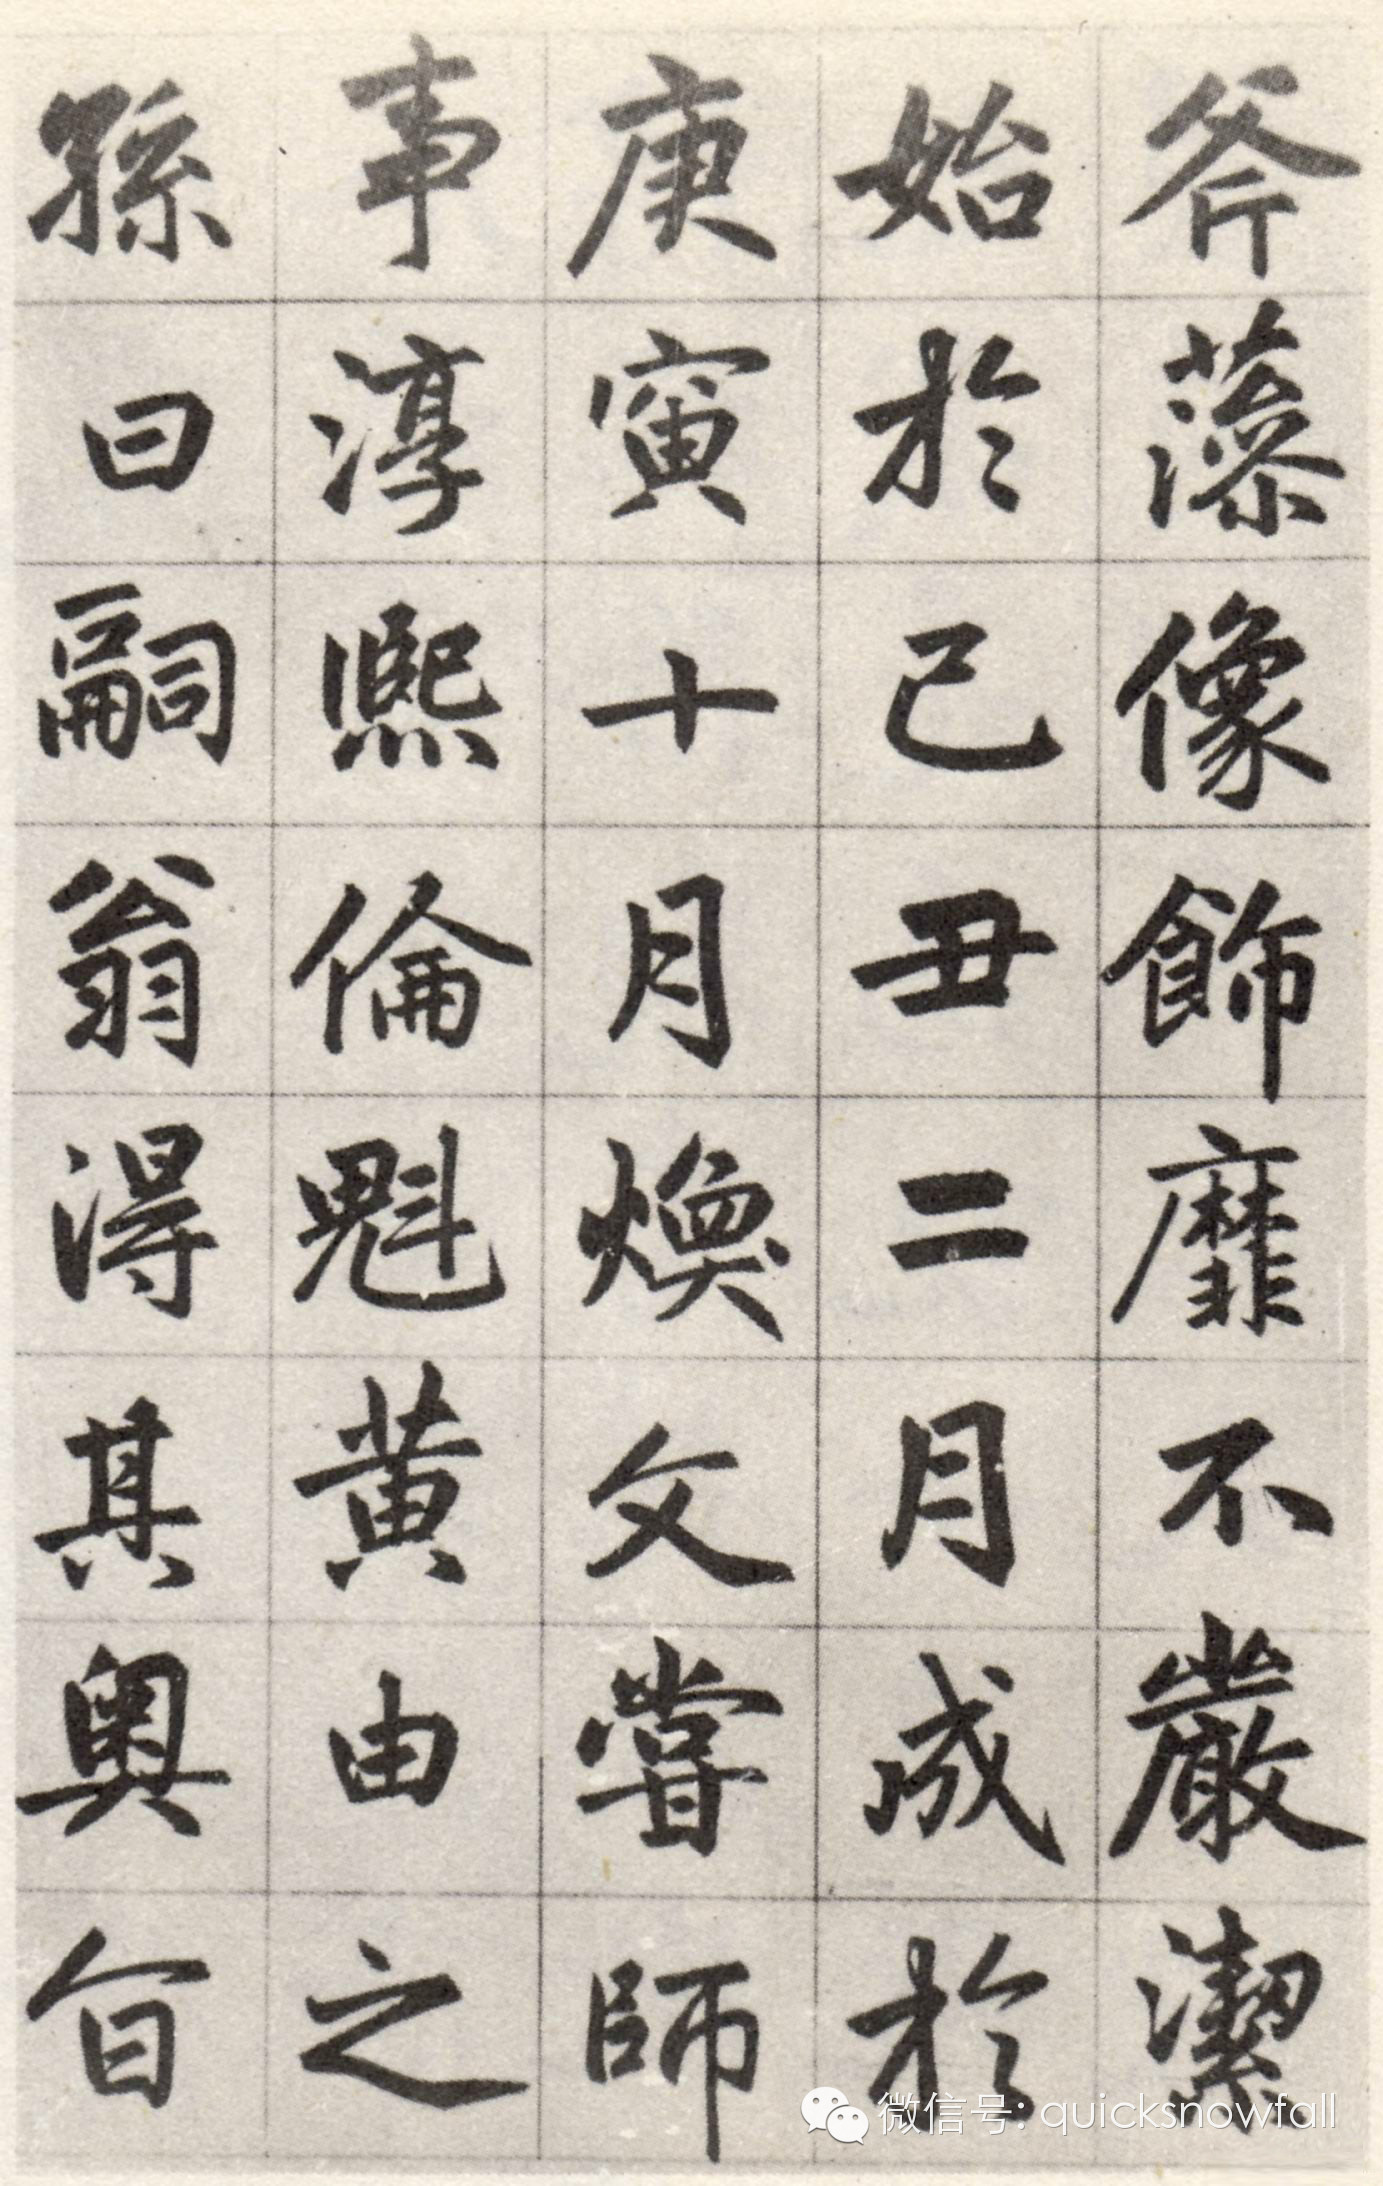 斧藻像飾靡不嚴潔
始於己丑二月成於
庚寅十月煥文嘗師
事淳熙倫魁黃由之
孫曰嗣翁得其奧旨
微信号: quicksnowfall